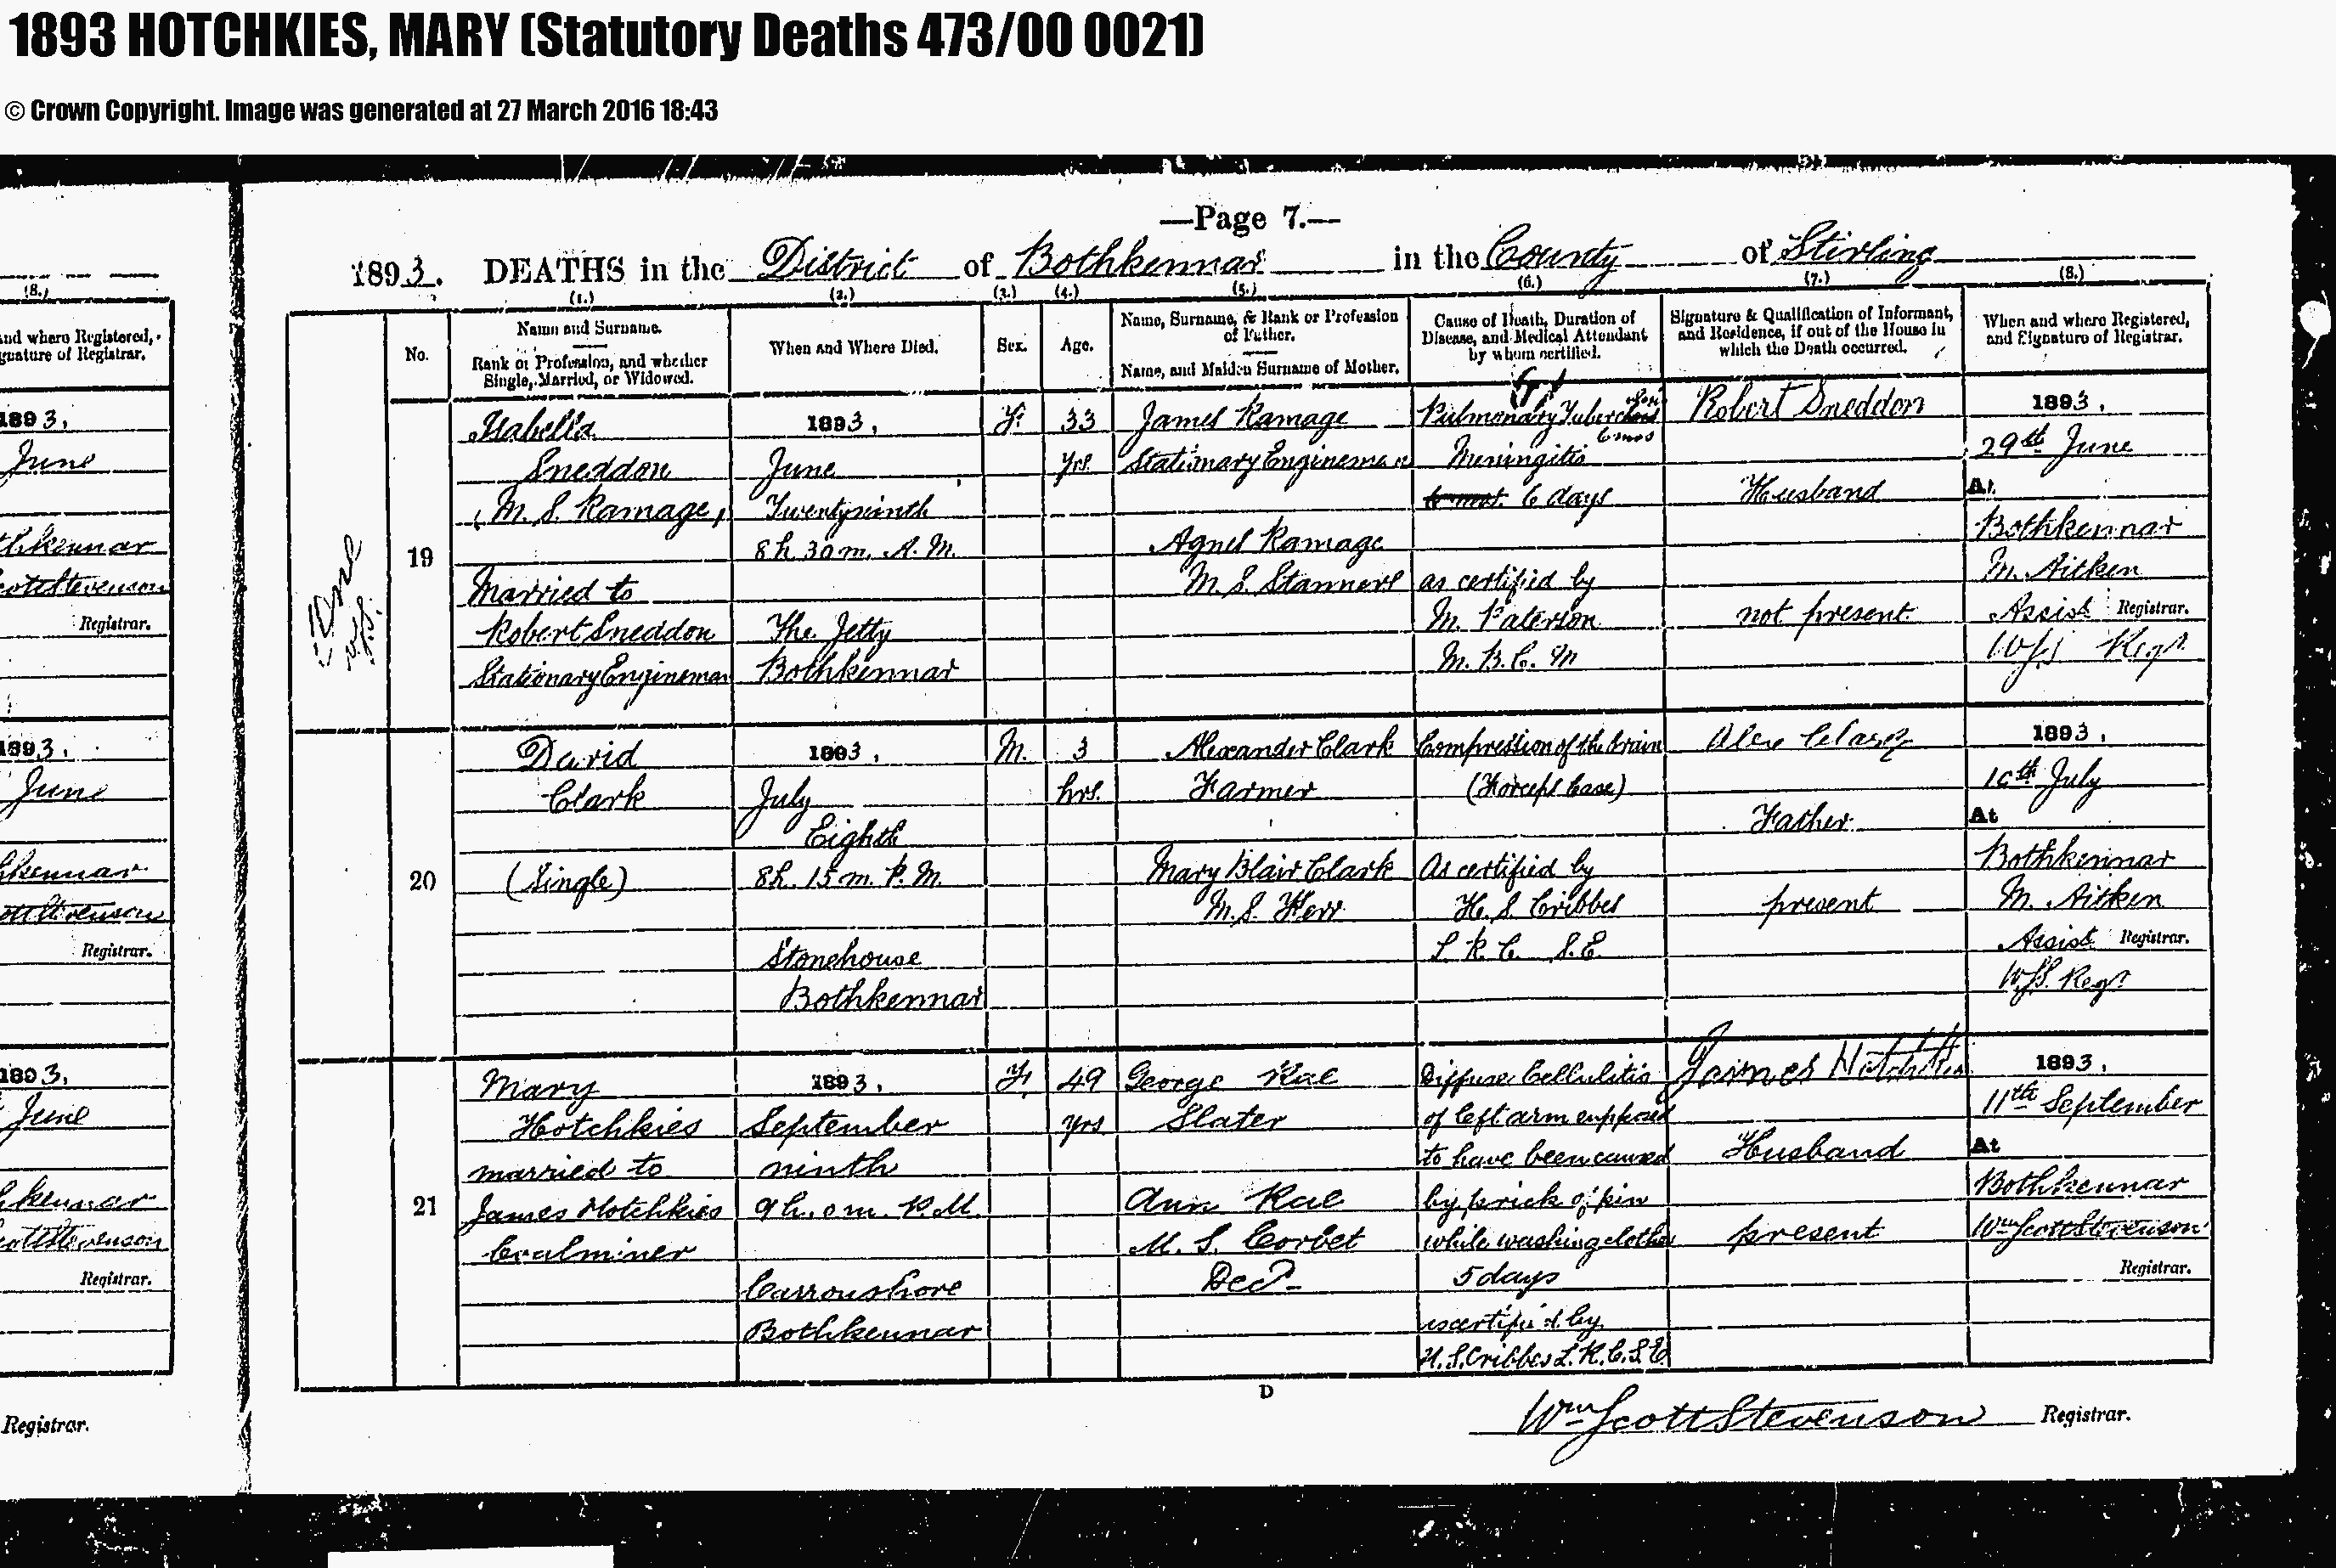 1893 HOTCHKIES, MARY (Statutory Deaths 473/00 0021)
© Crown Copyright. Image was generated at 27 March 2016 18:43
—Page 7.—
1893. DEATHS in the District of Bothkennar in the County of Stirling
(8.)
and where Registered,
gnature of Registrar.
1893,
June
thkennar
ScottStevenson
Registrar.
1893,
June
hkennar
Registrar.
1893,
June
hkennar
Registrar.
Registrar.
(1.) (2.) (3.) (4.) (5.) (6.) (7.) (8.)
No.
Name and Surname.
Rank or Profession, and whether
Single, Married, or Widowed.
When and Where Died.
Sex.
Age.
Name, Surname, & Rank or Profession
of Father.
Name, and Maiden Surname of Mother.
Cause of Death, Duration of
Disease, and Medical Attendant
by whom certified.
Signature & Qualification of Informant,
and Residence, if out of the House in
which the Death occurred.
When and where Registered,
and Signature of Registrar.
19
Isabella
Sneddon
(M. S. Ramage)
Married to
Robert Sneddon
Stationary Engineman
1893,
June
Twentyninth
8 h. 30 m. A. M.
The Jetty
Bothkennar
F.
33
Yrs.
James Ramage
Stationary Engineman
Agnes Ramage
M. S. Stanners
Pulmonary
6 mos
Meningitis
6 days
as certified by
M. Paterson
M. B. C. M
Robert Sneddon
Husband
not present
1893,
29th June
At
Bothkennar
M. Aitken
Assist Registrar.
WSS Regr.
20
David
Clark
(Single)
1893,
July
Eighth
8 h. 15 m. P. M.
Stonehouse
Bothkennar
M.
3
hrs.
Alexander Clark
Farmer
Mary Blair Clark
M. S. Kerr
Compression of the brain
(Forceps Case)
As certified by
H. S. Cribbes
L. R. C. S. E.
Alex Clark
Father
present
1893,
10th July
At
Bothkennar
M. Aitken
Assist Registrar.
WSS. Regr
21
Mary
Hotchkies
married to
James Hotchkies
Coalminer
1893,
September
ninth
9 h. 0 m. P. M.
Carronshore
Bothkennar
F.
49
yrs
George Rae
Slater
Ann Rae
M. S. Corbet
Decd.
Diffuse Cellulitis
of left arm supposed
to have been caused
by prick of pin
while washing clothes
5 days
as certified by
H. S. Cribbes L. R. C. S. E.
James Hotchkies
Husband
present
1893,
11th September
At
Bothkennar
Wm Scott Stevenson
Registrar.
D
Wm Scott Stevenson Registrar.